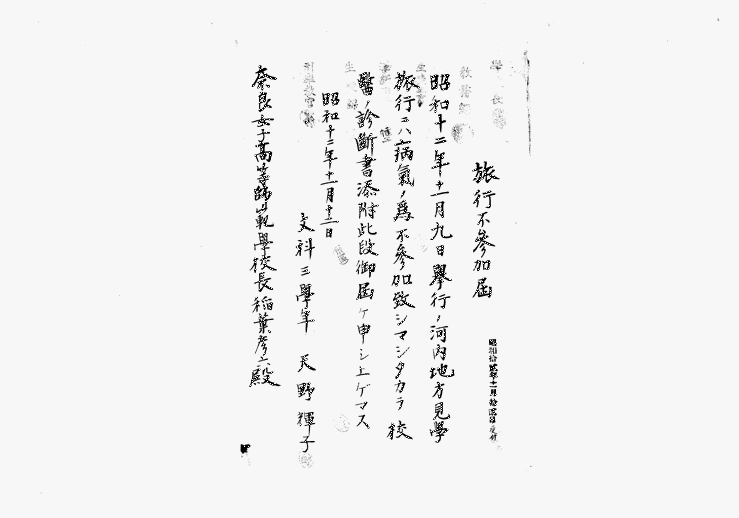 旅行不參加屆
昭和十二年十一月九日擧行ノ河內地方見學
旅行ニハ病氣ノ爲不參加致シマシタカラ校
醫ノ診斷書添附此段御屆ケ申シ上ゲマス
昭和十二年十一月十二日
文科三學年 天野輝子
奈良女子高等師範學校長 稻葉彥六殿